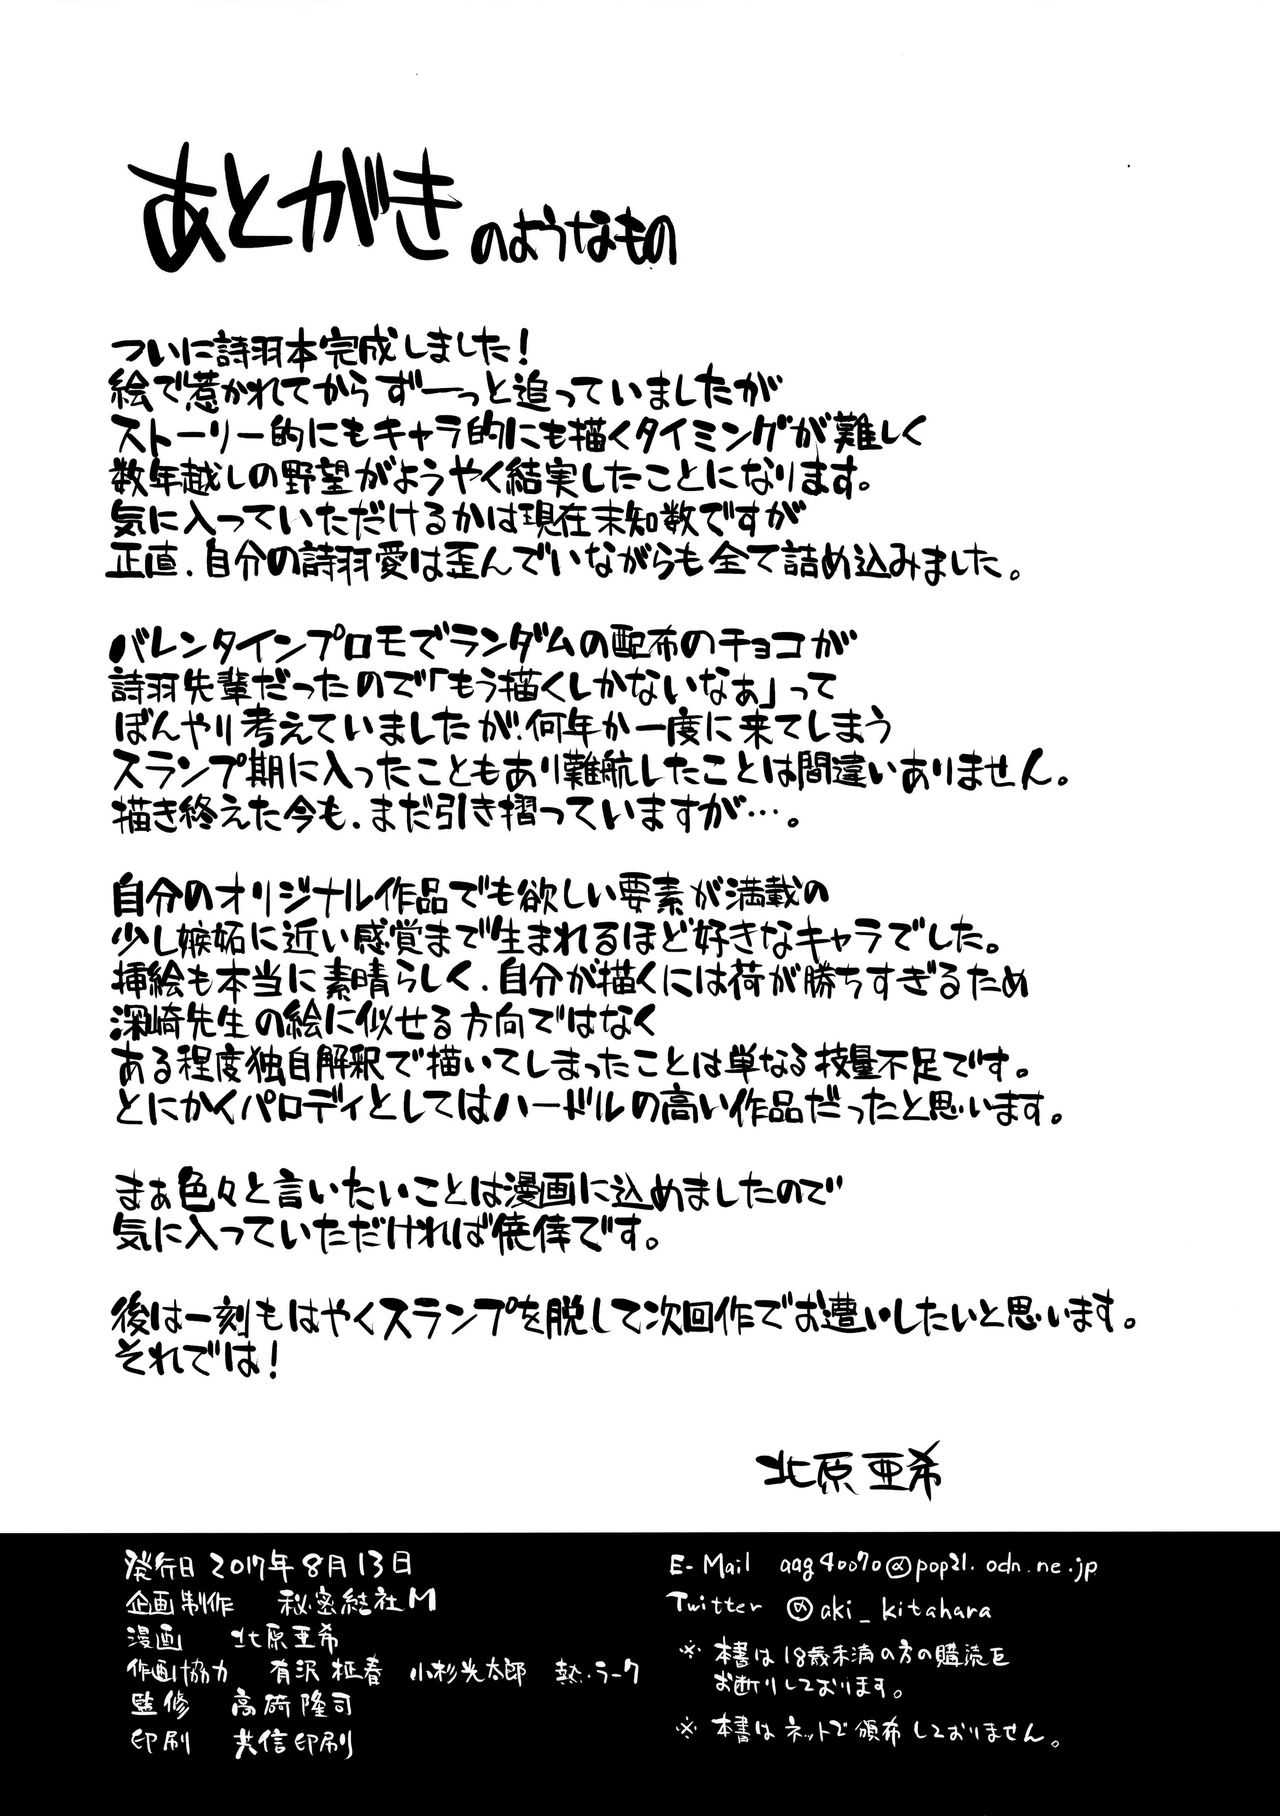 あとがきのようなもの
ついに詩羽本完成しました!
絵で惹かれてからずーっと追っていましたが
ストーリー的にもキャラ的にも描くタイミングが難しく
数年越しの野望がようやく結実したことになります。
気に入っていただけるかは現在未知数ですが
正直、自分の詩羽愛は歪んでいながらも全て詰め込みました。
バレンタインプロモでランダムの配布のチョコが
詩羽先輩だったので「もう描くしかないなぁ」って
ぼんやり考えていましたが、何年か一度に来てしまう
スランプ期に入ったこともあり難航したことは間違いありません。
描き終えた今も、まだ引き摺っていますが…。
自分のオリジナル作品でも欲しい要素が満載の
少し嫉妬に近い感覚まで生まれるほど好きなキャラでした。
挿絵も本当に素晴らしく、自分が描くには荷が勝ちすぎるため
深崎先生の絵に似せる方向ではなく
ある程度独自解釈で描いてしまったことは単なる技量不足です。
とにかくパロディとしてはハードルの高い作品だったと思います。
まぁ色々と言いたいことは漫画に込めましたので
気に入っていただければ僥倖です。
後は一刻もはやくスランプを脱して次回作でお遭いしたいと思います。
それでは!
北原亜希
発行日 2017年8月13日
企画制作 秘密結社M
漫画 北原亜希
作画協力 有沢 柾春 小杉光太郎 熱・ラーク
監修 高 隆司
印刷 共信印刷
E-Mail aag40070@pop21.odn.ne.jp
Twitter @aki_kitahara
※ 本書は18歳未満の方の購読を
お断りしております。
※ 本書はネットで頒布しておりません。